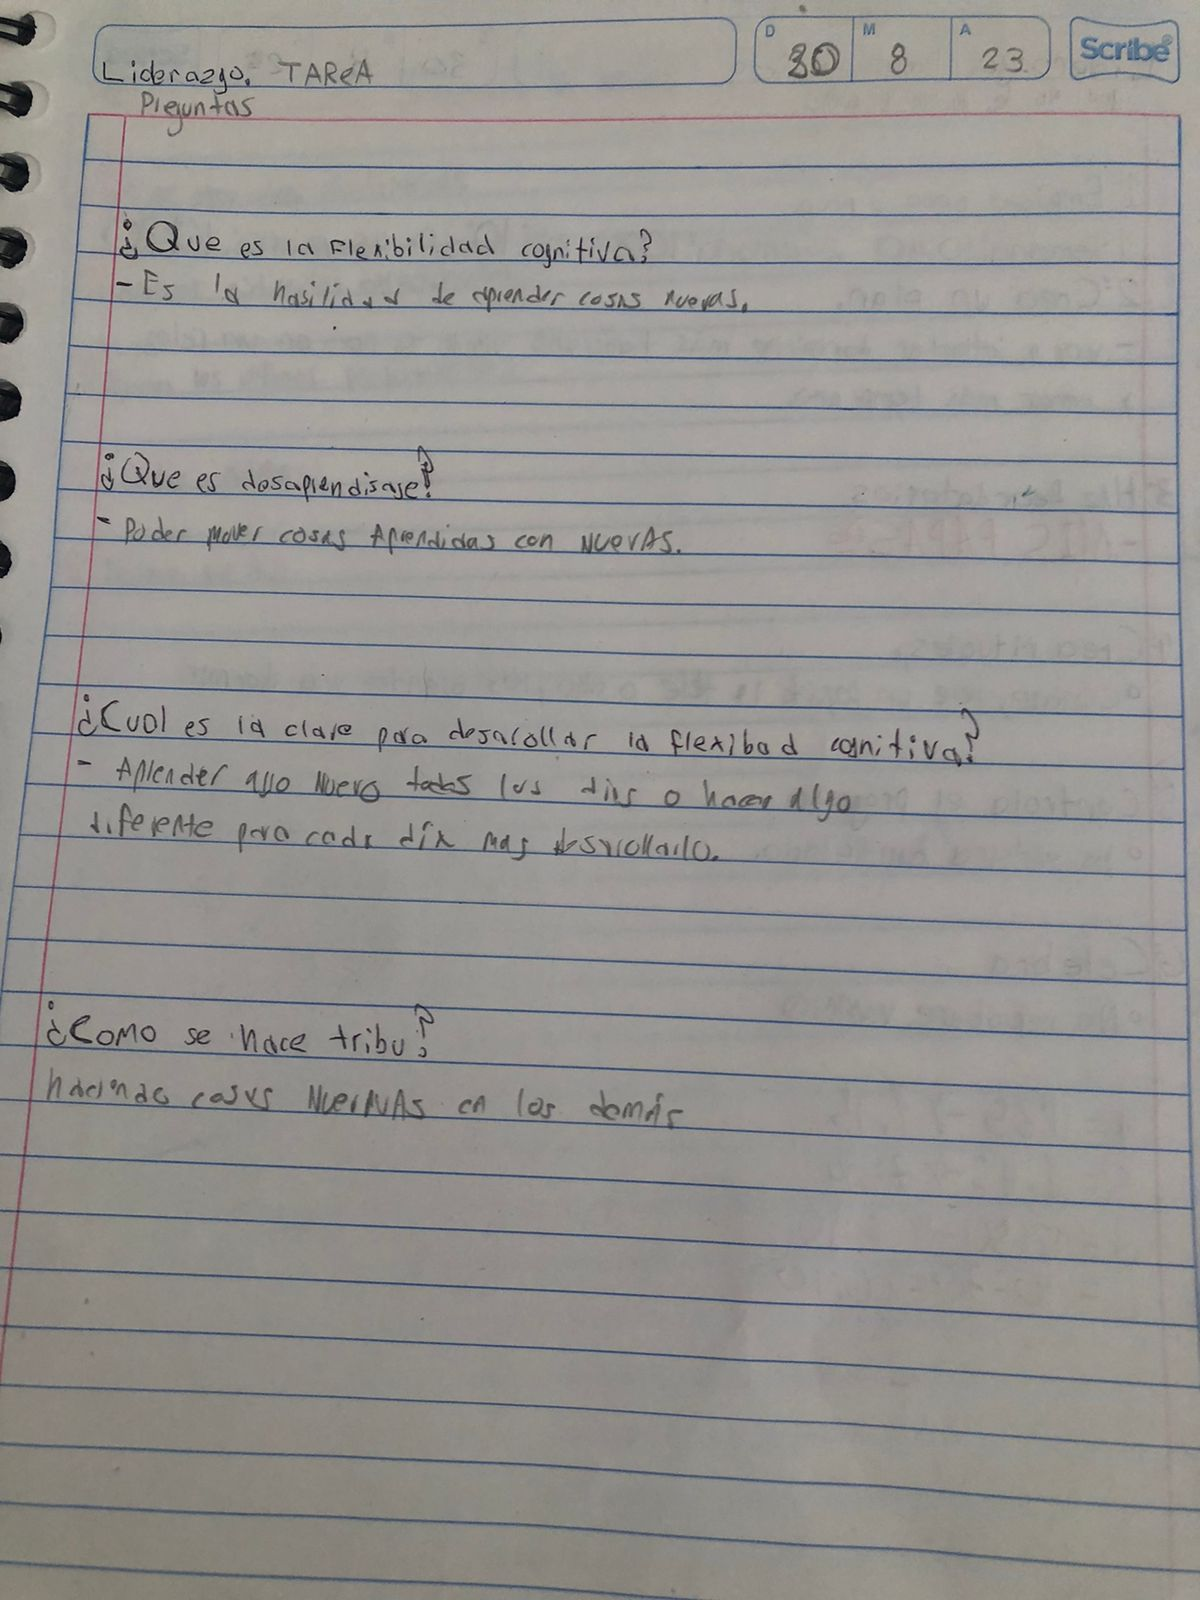 Liderazgo. TAReA
D 30 M 8 A 23
Scribe
Preguntas
¿Que es la Flexibilidad cognitiva?
- Es la hasilidad de aprender cosas nuevas.
¿Que es desaprendisaje?
- Poder mover cosas Aprendidas con NUevAS.
¿Cual es la clave para desarollar la flexibad cognitiva?
- Aprender algo Nuevo todos los dias o hacer algo
diferente para cada día mas desarollarlo.
¿Como se hace tribu?
haciendo cosas en los demás